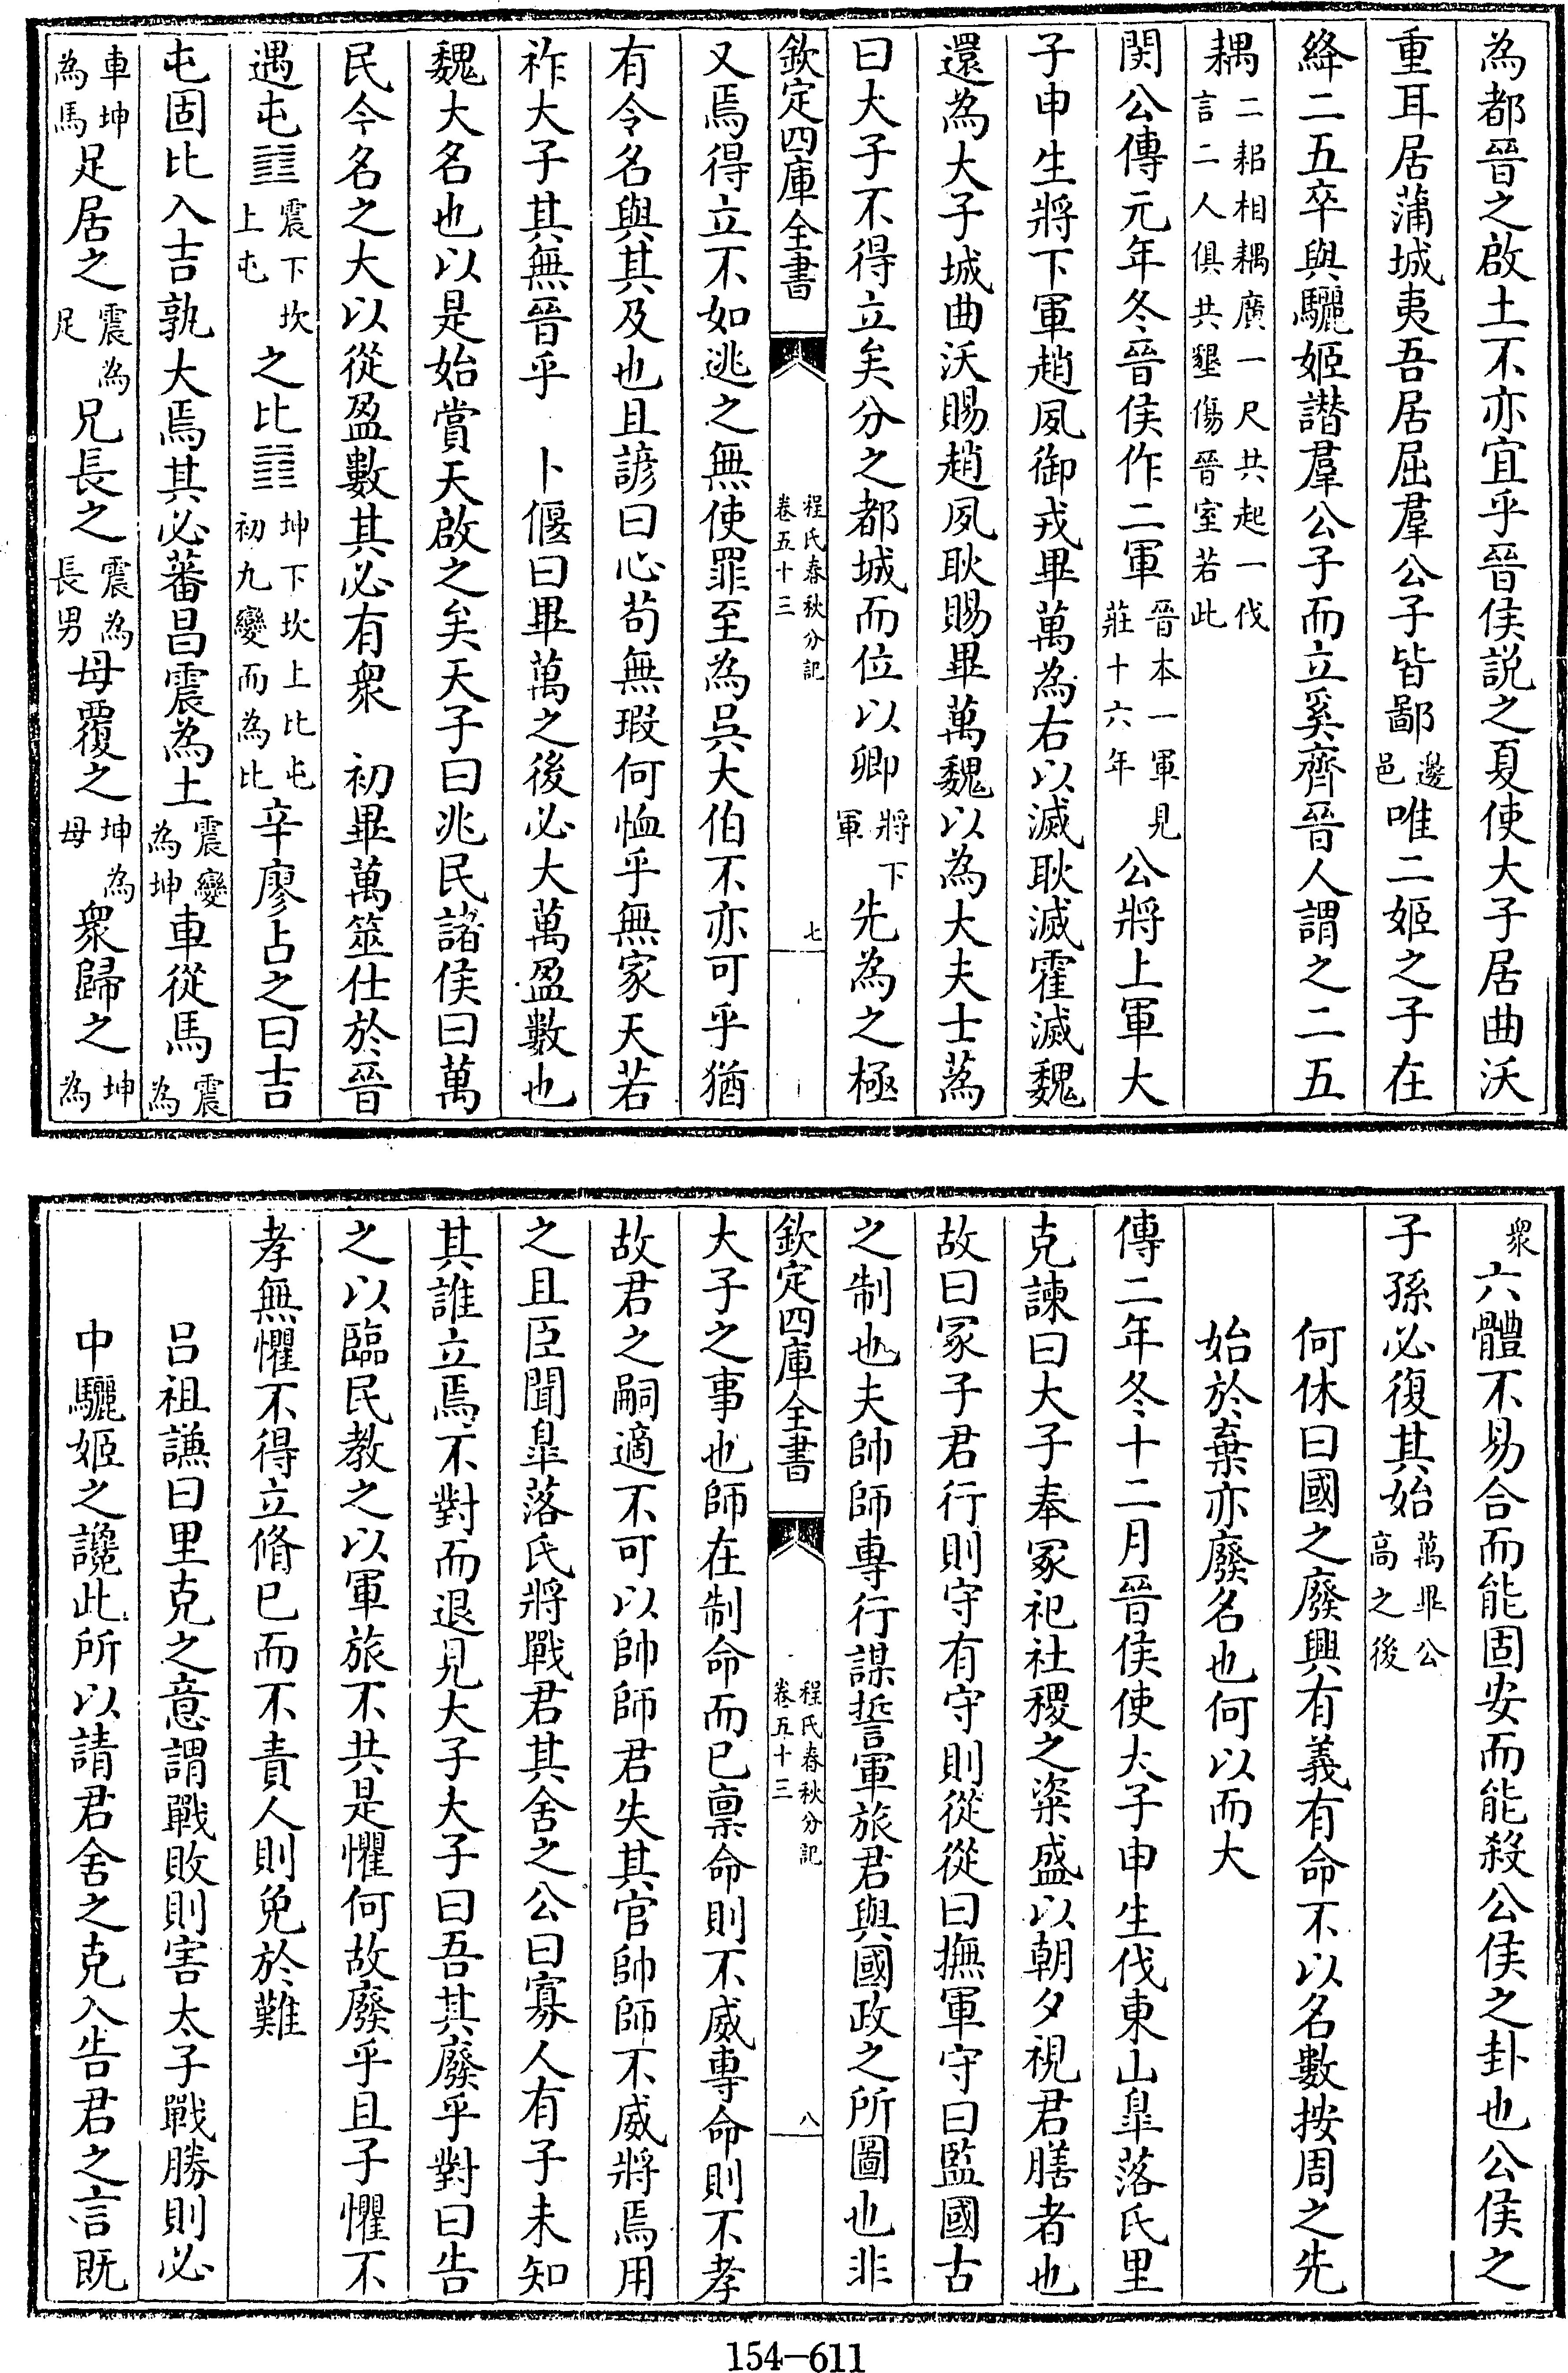 為都晉之啟土不亦宜乎晉侯説之夏使大子居曲沃
重耳居蒲城夷吾居屈羣公子皆鄙邊邑唯二姬之子在
絳二五卒與驪姬譖羣公子而立奚齊晉人謂之二五
耦二耜相耦廣一尺共起一伐言二人俱共墾傷晉室若此
閔公傳元年冬晉侯作二軍晉本一軍見莊十六年公將上軍大
子申生將下軍趙夙御戎畢萬為右以滅耿滅霍滅魏
還為大子城曲沃賜趙夙耿賜畢萬魏以為大夫士蒍
曰大子不得立矣分之都城而位以卿將下軍先為之極
欽定四庫全書 程氏春秋分記卷五十三 七
又焉得立不如逃之無使罪至為吳大伯不亦可乎猶
有令名與其及也且諺曰心苟無瑕何恤乎無家天若
祚大子其無晉乎 卜偃曰畢萬之後必大萬盈數也
魏大名也以是始賞天啟之矣天子曰兆民諸侯曰萬
民今名之大以從盈數其必有衆 初畢萬筮仕於晉
遇屯䷂震下坎上屯之比䷇坤下坎上比屯初九變而為比辛廖占之曰吉
屯固比入吉孰大焉其必蕃昌震為土震變為坤車從馬震為
車坤為馬足居之震為足兄長之震為長男母覆之坤為母衆歸之坤為
衆六體不易合而能固安而能殺公侯之卦也公侯之
子孫必復其始萬畢公高之後
何休曰國之廢興有義有命不以名數按周之先
始於棄亦廢名也何以而大
傳二年冬十二月晉侯使大子申生伐東山臯落氏里
克諫曰大子奉冢祀社稷之粢盛以朝夕視君膳者也
故曰冢子君行則守有守則從從曰撫軍守曰監國古
之制也夫帥師專行謀誓軍旅君與國政之所圖也非
欽定四庫全書 程氏春秋分記卷五十三 八
大子之事也師在制命而已稟命則不威專命則不孝
故君之嗣適不可以帥師君失其官帥師不威將焉用
之且臣聞臯落氏將戰君其舍之公曰寡人有子未知
其誰立焉不對而退見大子大子曰吾其廢乎對曰告
之以臨民教之以軍旅不共是懼何故廢乎且子懼不
孝無懼不得立脩已而不責人則免於難
呂祖謙曰里克之意謂戰敗則害太子戰勝則必
中驪姬之讒此所以請君舍之克入告君之言既
154-611